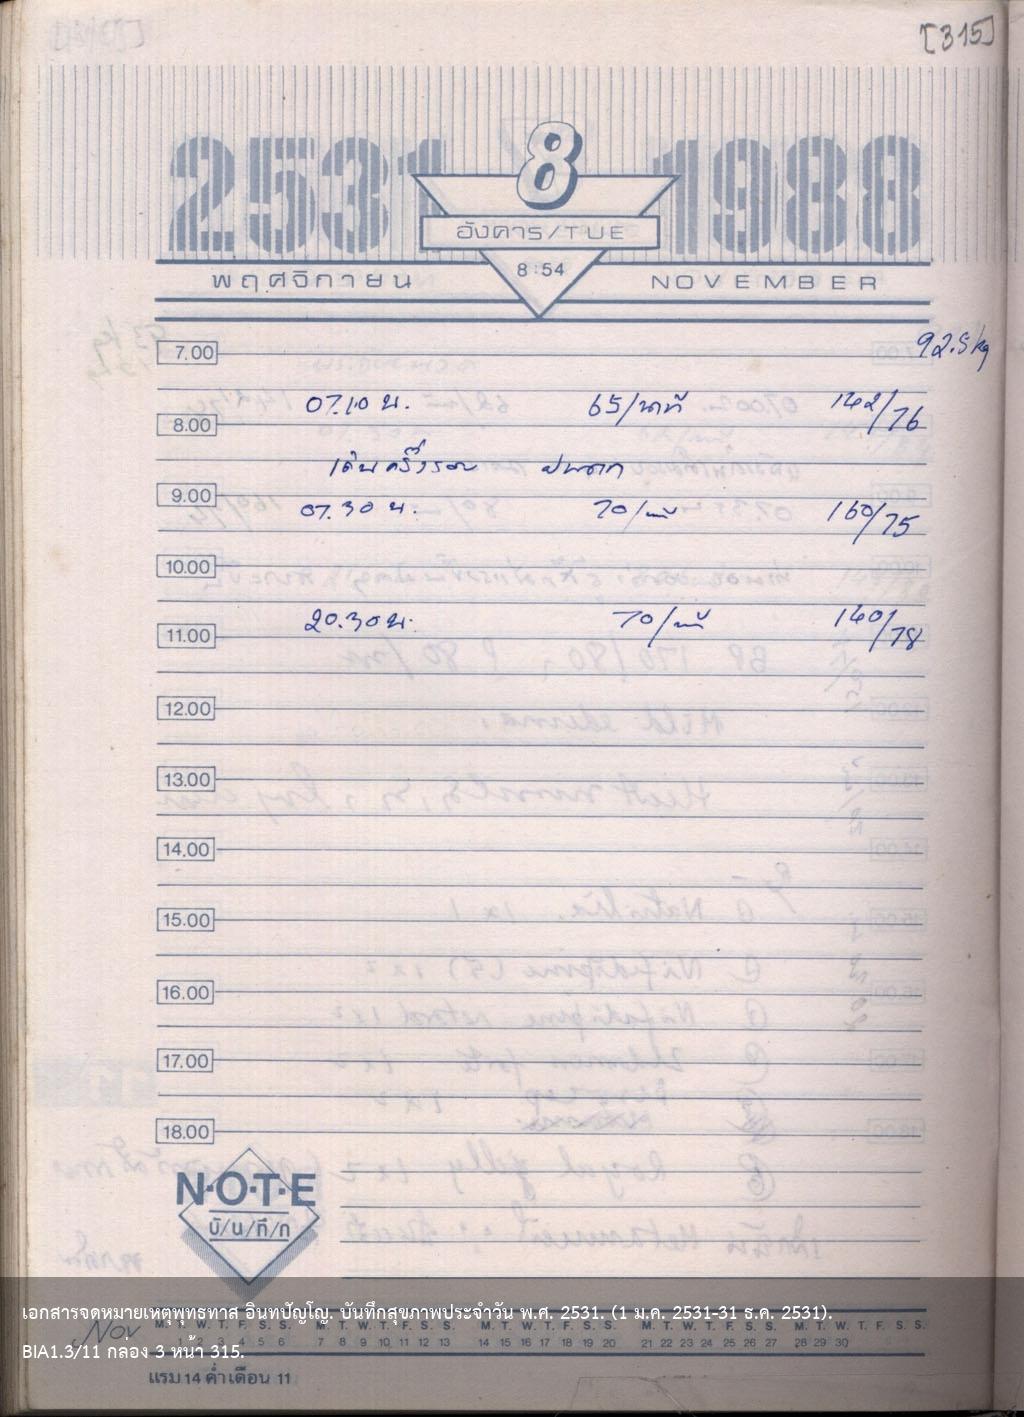 [315]
2531 8 1988
อังคาร/TUE
8:54
พฤศจิกายน NOVEMBER
92.5 kg
7.00
07.10 น. 65/นาที 142/76
8.00
เดินครึ่งรอบ
9.00
07.30 น. 70/นาที 160/75
10.00
20.30 น. 70/นาที 140/78
11.00
12.00
13.00
14.00
15.00
16.00
17.00
18.00
N·O·T·E
บั/น/ทึ/ก
เอกสารจดหมายเหตุพุทธทาส อินทปัญโญ. บันทึกสุขภาพประจำวัน พ.ศ. 2531. (1 ม.ค. 2531-31 ธ.ค. 2531).
Nov M. T. W. T. F. S. S. M. T. W. T. F. S. S. M. T. W. T. F. S. S. M. T. W. T. F. S. S. M. T. W. T. F. S. S.
1 2 3 4 5 6 7 8 9 10 11 12 13 14 15 16 17 18 19 20 21 22 23 24 25 26 27 28 29 30
BIA1.3/11 กล่อง 3 หน้า 315.
แรม 14 ค่ำ เดือน 11